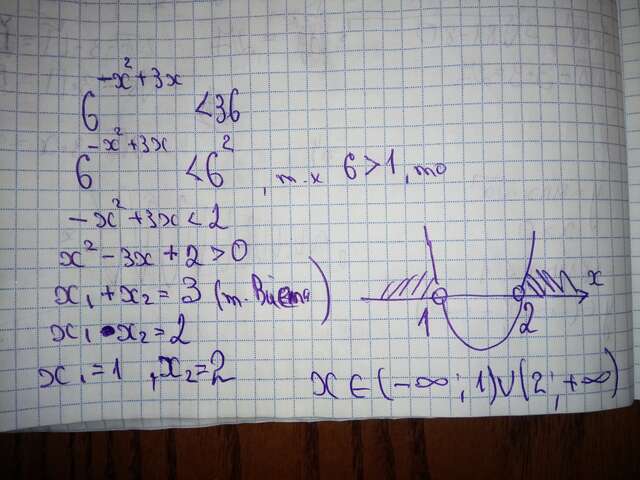 6^(-x²+3x) < 36
6^(-x²+3x) < 6², т.к 6 > 1, то
-x² + 3x < 2
x² - 3x + 2 > 0
x₁ + x₂ = 3 (т. Виета)
x₁ • x₂ = 2
x₁ = 1, x₂ = 2
1 2 x
x ∈ (-∞; 1) ∪ (2; +∞)